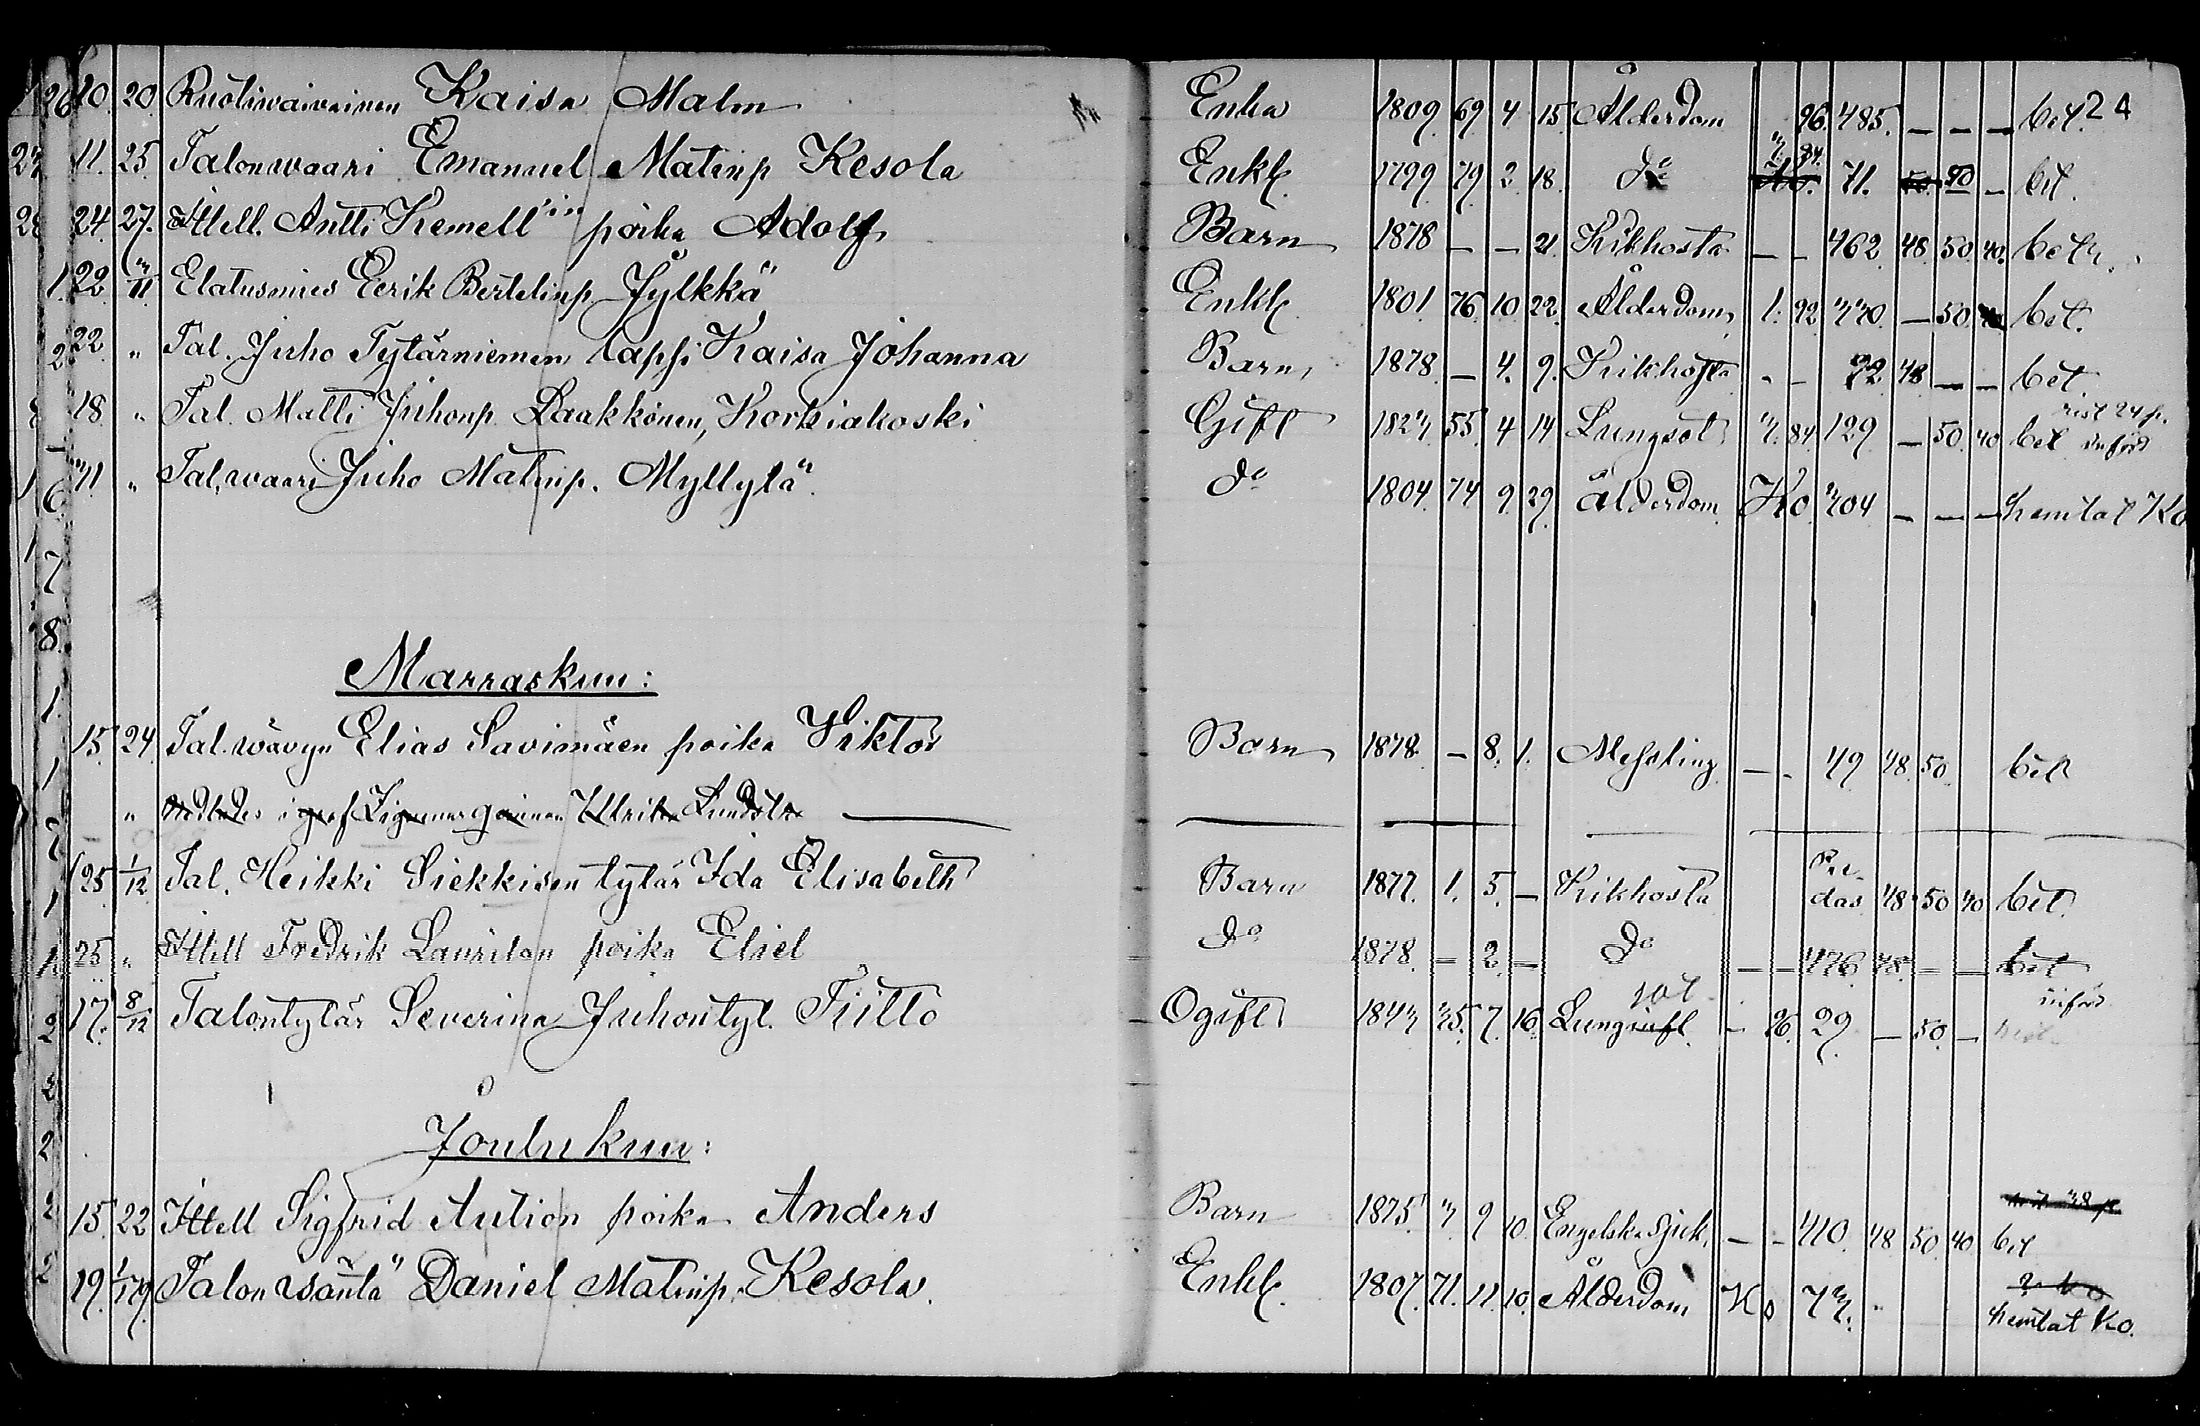 26 10. 20. Ruotiwaivainen Kaisa Malm Enka 1809. 69 4 15. Ålderdom 96. 485. — — — bet. 24
27 11. 25. Talonwaari Emanuel Matinp Kesola Enkl. 1799 79 2 18. do 71. — bet.
28 24. 27. Ittell. Antti Kemell'in poika Adolf Barn 1878 — — 21. Kikhosta — — 462. 48. 50. 40. bet.
1. 22 Elatusmies Eerik Bertelinp Jylkkä Enkl. 1801. 76. 10. 22. Ålderdom 1. 92 — 50. bet.
2. 22 „ Tal. Juho Tytärniemen lapsi Kaisa Johanna Barn 1878. — 4. 9. Kikhosta - - 72 48 — — bet
18 „ Tal. Matti Juhonp. Laakkonen, Korkiakoski Gift 1823 55 4 14 Lungsot 3. 84. 129 — 50. 40 bet
„ Tal. waari Juho Matinp. Myllylä. do 1804. 74 9. 29. Ålderdom. Ko. 304 — — — hemtat Ko
Marraskuu:
15. 24. Tal. wävyn Elias Savimäen poika Viktor Barn 1878. — 8. 1. Messling — - 49 48. 50. bet
„
25 1/12 Tal. Heikki Siekkisen tytär Ida Elisabeth Barn 1877. 1. 5. — Kikhosta 48 50 40 bet.
25 „ Ittell Fredrik Laurilan poika Eliel do 1878. — 2. — do — — 48. — — bet
17. 8/12 Talontytär Severina Juhontyt. Tiitto Ogift 1843 35. 7. 16. Lung sot - 26. 29. — 50. —
Joulukuu:
15. 22 Ittell Sigfrid Aution poika Anders Barn 1875. 3. 9 10. Engelska Sjuk. — - 410. 48 50 40 bet
19. Talon wanta Daniel Matinp. Kesola. Enkl. 1807. 71. 11. 10. Ålderdom Ko 73. hemtat Ko.